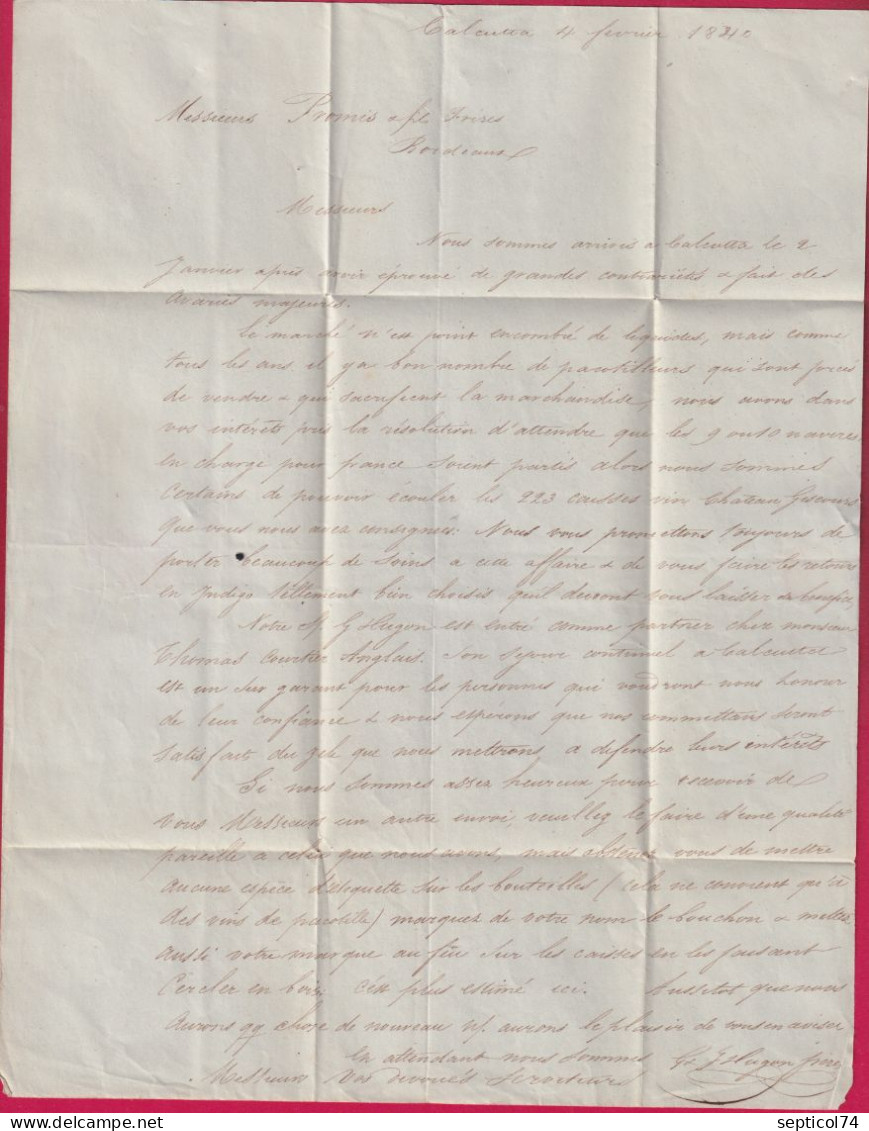 Calcutta 4 fevrier 1840
Messieurs Promis & fils Frères
Bordeaux
Messieurs
Nous sommes arrivés a Calcutta le 2
Janvier après avoir éprouvé de grandes contrariétés & fait des
avaries majeures.
Le marché n'est point encombré de liquides, mais comme
tous les ans il y a bon nombre de pacotilleurs qui sont forcés
de vendre & qui sacrifient la marchandise, nous avons dans
vos intérêts pris la résolution d'attendre que les 9 ou 10 navires
en charge pour france soient partis alors nous sommes
certains de pouvoir écouler les 223 caisses vin Chateau Giscours
que vous nous avez consignés. Nous vous promettons toujours de
porter beaucoup de soins a cette affaire & de vous faire les retours
en Indigo tellement bien choisis qu'il devront vous laisser du
Notre Mr G Hugon est entré comme partner chez monsieur
Thomas courtier Anglais. Son sejour continuel a Calcutta
est un sur garant pour les personnes qui voudront nous honorer
de leur confiance & nous espérons que nos committans seront
satisfaits du zele que nous mettrons a defendre leurs intérêts
Si nous sommes assez heureux pour recevoir de
vous Messieurs un autre envoi, veuillez le faire d'une qualité
pareille a celui que nous avons, mais abstenez vous de mettre
aucune espèce d'etiquette sur les bouteilles (cela ne convient qu'à
des vins de pacotille) marquez de votre nom le bouchon & mettez
aussi votre marque au feu sur les caisses en les faisant
cercler en bois, c'est plus estimé ici. Aussitot que nous
aurons qq chose de nouveau ns. aurons le plaisir de vous en aviser
En attendant nous sommes
Messieurs Vos devoués Serviteurs
Hugon frères
septicol74